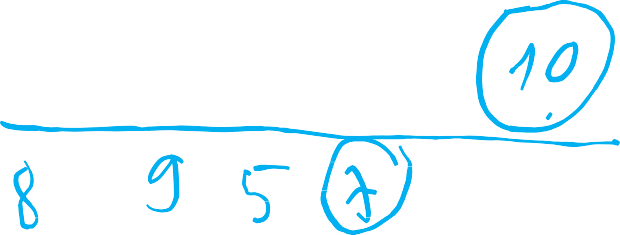 10
8 9 5 7